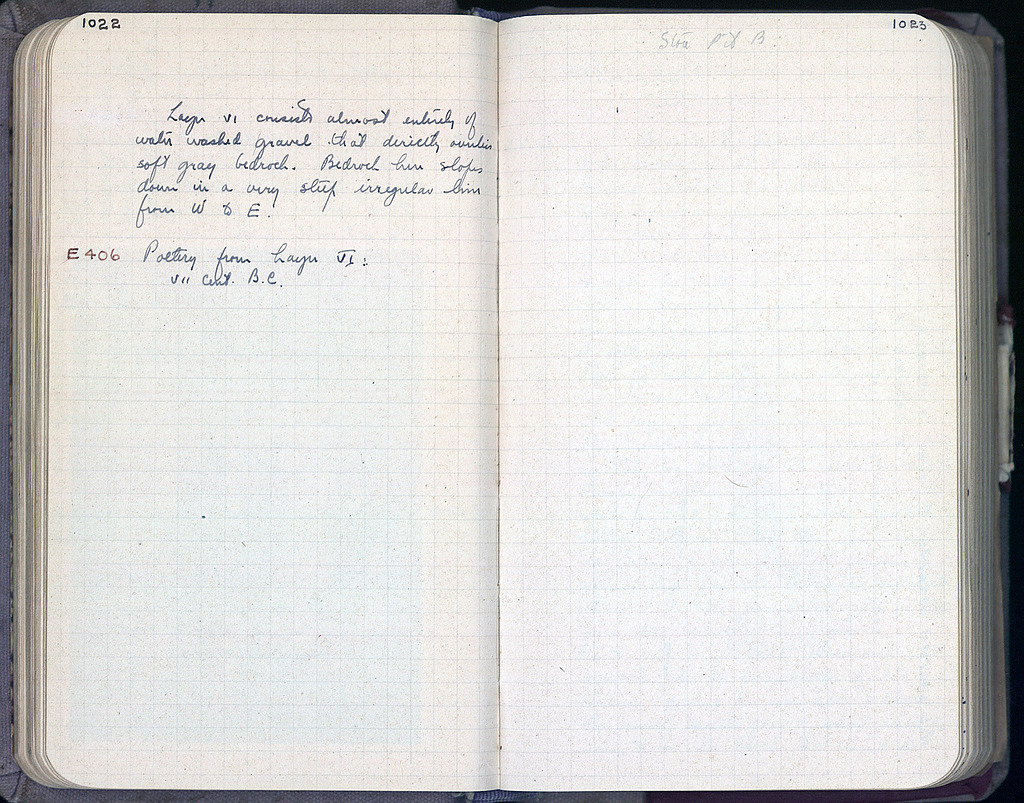 1022
Layer VI consists almost entirely of
water washed gravel that directly overlies
soft gray bedrock. Bedrock here slopes
down in a very steep irregular line
from W to E.
E 406 Pottery from Layer VI:
VII cent. B.C.
1023
Pit B